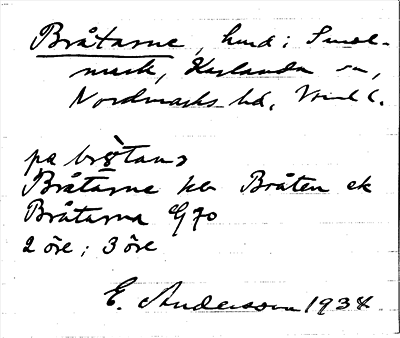 Bråtarne, hmd i Smol-
mark, Karlanda sn,
Nordmarks hd, Vrml l.
på br
Bråtarne kb Bråten ek
Bråtarna G 70
2 öre; 3 öre
E. Anderson 1934.